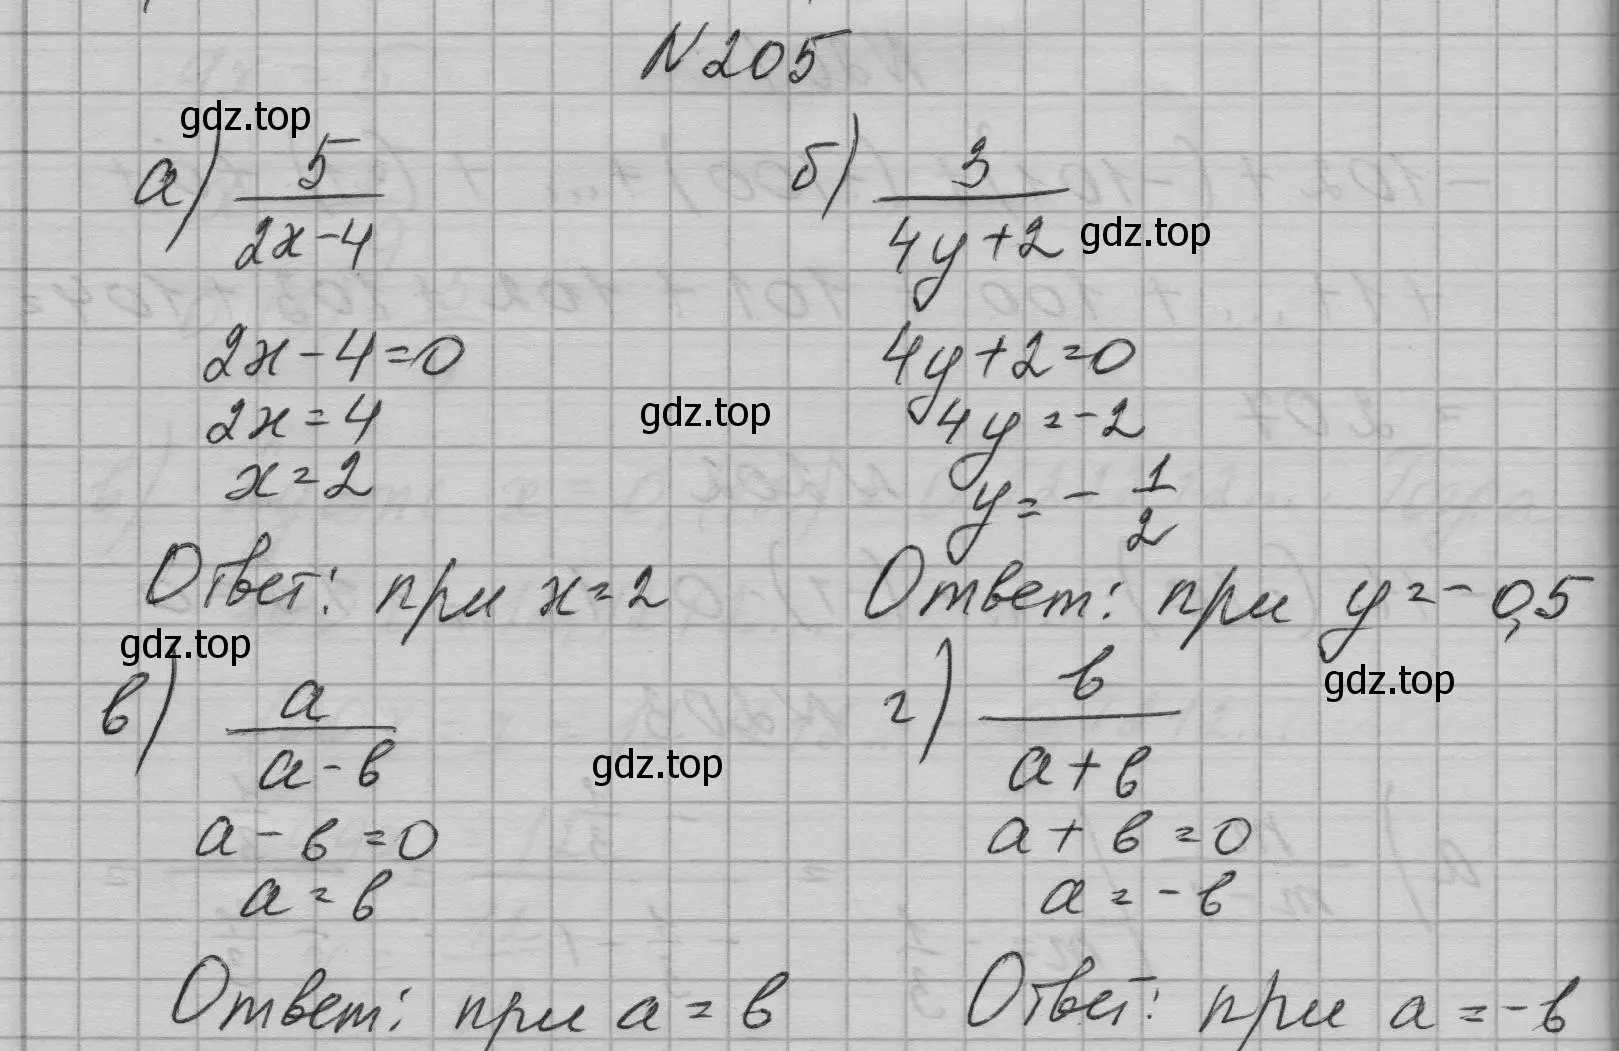 N 205
gdz.top
а) 5/(2x-4)
2x-4=0
2x=4
x=2
Ответ: при x=2
б) 3/(4y+2)
gdz.top
4y+2=0
4y=-2
y=-1/2
Ответ: при y=-0,5
gdz.top
gdz.top
в) a/(a-b)
a-b=0
a=b
Ответ: при a=b
gdz.top
г) b/(a+b)
gdz.top
a+b=0
a=-b
Ответ: при a=-b